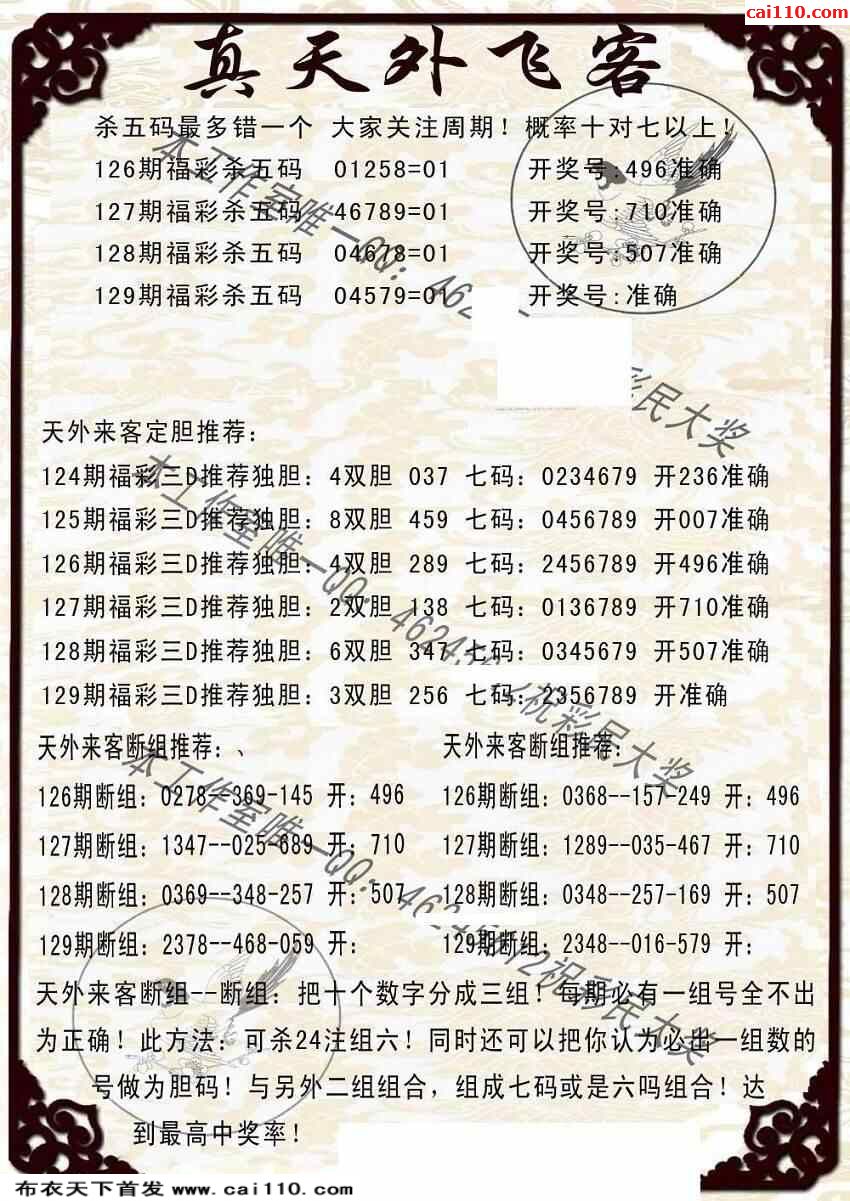 cai110.com
真天外飞客
杀五码最多错一个 大家关注周期！概率十对七以上！
126期福彩杀五码 01258=01 开奖号:496准确
127期福彩杀五码 46789=01 开奖号:710准确
128期福彩杀五码 04678=01 开奖号:507准确
129期福彩杀五码 04579=01 开奖号:准确
天外来客定胆推荐:
124期福彩三D推荐独胆: 4双胆 037 七码: 0234679 开236准确
125期福彩三D推荐独胆: 8双胆 459 七码: 0456789 开007准确
126期福彩三D推荐独胆: 4双胆 289 七码: 2456789 开496准确
127期福彩三D推荐独胆: 2双胆 138 七码: 0136789 开710准确
128期福彩三D推荐独胆: 6双胆 347 七码: 0345679 开507准确
129期福彩三D推荐独胆: 3双胆 256 七码: 2356789 开准确
天外来客断组推荐:、
126期断组: 0278--369-145 开: 496
127期断组: 1347--025-689 开: 710
128期断组: 0369--348-257 开: 507
129期断组: 2378--468-059 开:
天外来客断组推荐:
126期断组: 0368--157-249 开: 496
127期断组: 1289--035-467 开: 710
128期断组: 0348--257-169 开: 507
129期断组: 2348--016-579 开:
天外来客断组--断组: 把十个数字分成三组！每期必有一组号全不出
为正确！此方法: 可杀24注组六！同时还可以把你认为必出一组数的
号做为胆码！与另外二组组合, 组成七码或是六吗组合！达
到最高中奖率！
本工作室唯一QQ: 462
彩民大奖
本工作室唯一QQ: 46245
祝彩民大奖
本工作室唯一QQ: 462
2祝彩民大奖
布衣天下首发 www.cai110.com